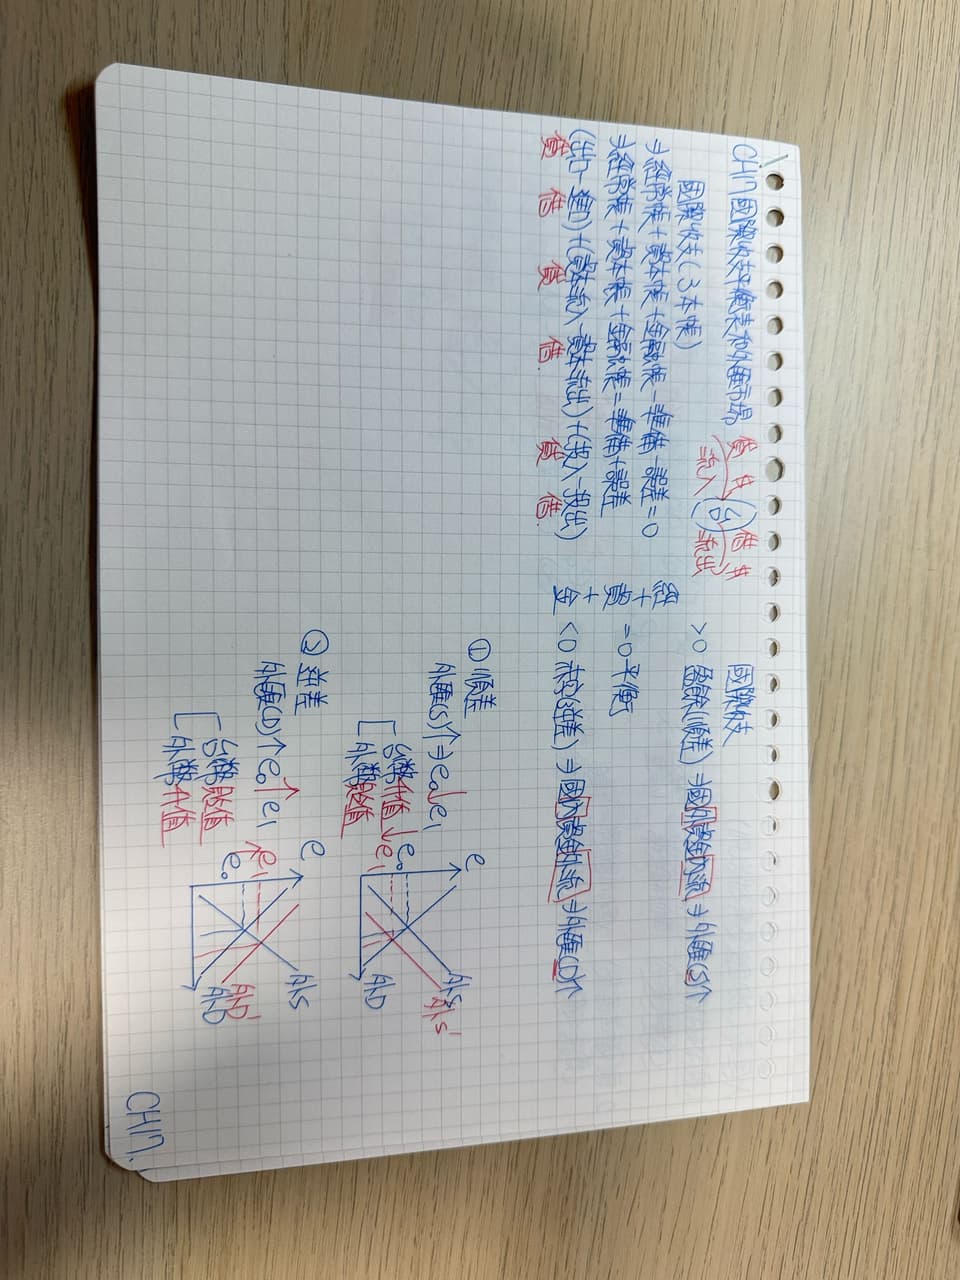 CH17 國際收支平衡表和外匯市場
貸 方 借 方
流入 (台) 流出
國際收支(3本帳)
⇒經常帳+資本帳+金融帳-準備-誤差=0
⇒經常帳+資本帳+金融帳=準備+誤差
(出口-進口)+(資本流入-資本流出)+(投入-投出)
貸 借 貸 借 貸 借
國際收支
經+資+金
>0 盈餘(順差)⇒國外資金內流⇒外匯(S)↑
=0 平衡
<0 赤字(逆差)⇒國內資金外流⇒外匯(D)↑
①順差
外匯(S)↑⇒e0↓e1
台幣升值
外幣貶值
e
e0
↓e1
外S
外S'
外D
②逆差
外匯(D)↑e0↑e1
台幣貶值
外幣升值
e
e1
e0
外S
外D'
外D
CH17.